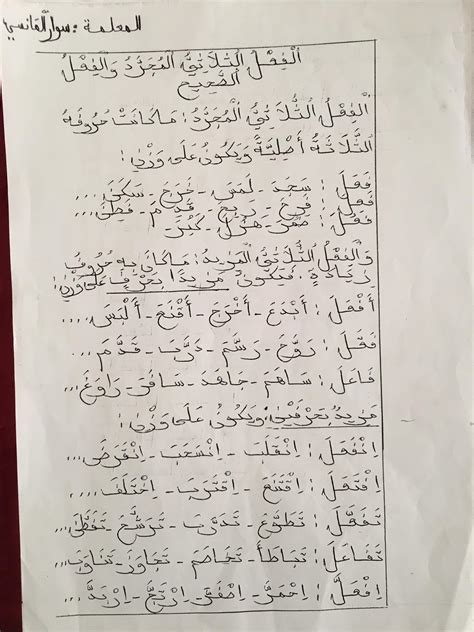 المعلمة : سوار القانسي
اَلْفِعْلُ الثُّلَاثِيُّ الْمُجَرَّدُ وَالْفِعْلُ
الصَّحِيحُ
اَلْفِعْلُ الثُّلَاثِيُّ الْمُجَرَّدُ : مَا كَانَتْ حُرُوفُهُ
الثَّلَاثَةُ أَصْلِيَّةً وَيَكُونُ عَلَى وَزْنِ :
فَعَلَ : سَجَدَ - لَمَسَ - خَرَجَ - سَكَنَ ...
فَعِلَ : فَرِحَ - رَبِحَ - قَدِمَ - فَطِنَ ...
فَعُلَ : صَغُرَ - هَزُلَ - كَبُرَ -
وَالْفِعْلُ الثُّلَاثِيُّ الْمَزِيدُ : مَا كَانَ بِهِ حُرُوفُ
زِيَادَةٍ . فَيَكُونُ مَزِيدًا بِحَرْفٍ عَلَى وَزْنِ :
أَفْعَلَ : أَبْدَعَ - أَخْرَجَ - أَقْنَعَ - أَلْبَسَ ....
فَعَّلَ : رَوَّحَ - رَسَّمَ - دَرَّبَ - قَدَّمَ ..
فَاعَلَ : سَاهَمَ - جَاهَدَ - سَافَرَ - رَاوَغَ ...
مَزِيدٌ بِحَرْفَيْنِ وَيَكُونُ عَلَى وَزْنِ :
اِنْفَعَلَ : اِنْقَلَبَ - اِنْسَحَبَ - اِنْقَرَضَ ...
اِفْتَعَلَ : اِقْتَنَعَ - اِقْتَرَبَ - اِخْتَلَفَ ....
تَفَعَّلَ : تَطَوَّعَ - تَدَرَّبَ - تَرَشَّحَ - تَفَطَّنَ ...
تَفَاعَلَ : تَبَاطَأَ - تَخَاصَمَ - تَجَاوَزَ - تَنَاوَبَ ...
اِفْعَلَّ : اِحْمَرَّ - اِصْفَرَّ - اِرْتَجَّ - اِرْبَدَّ ...